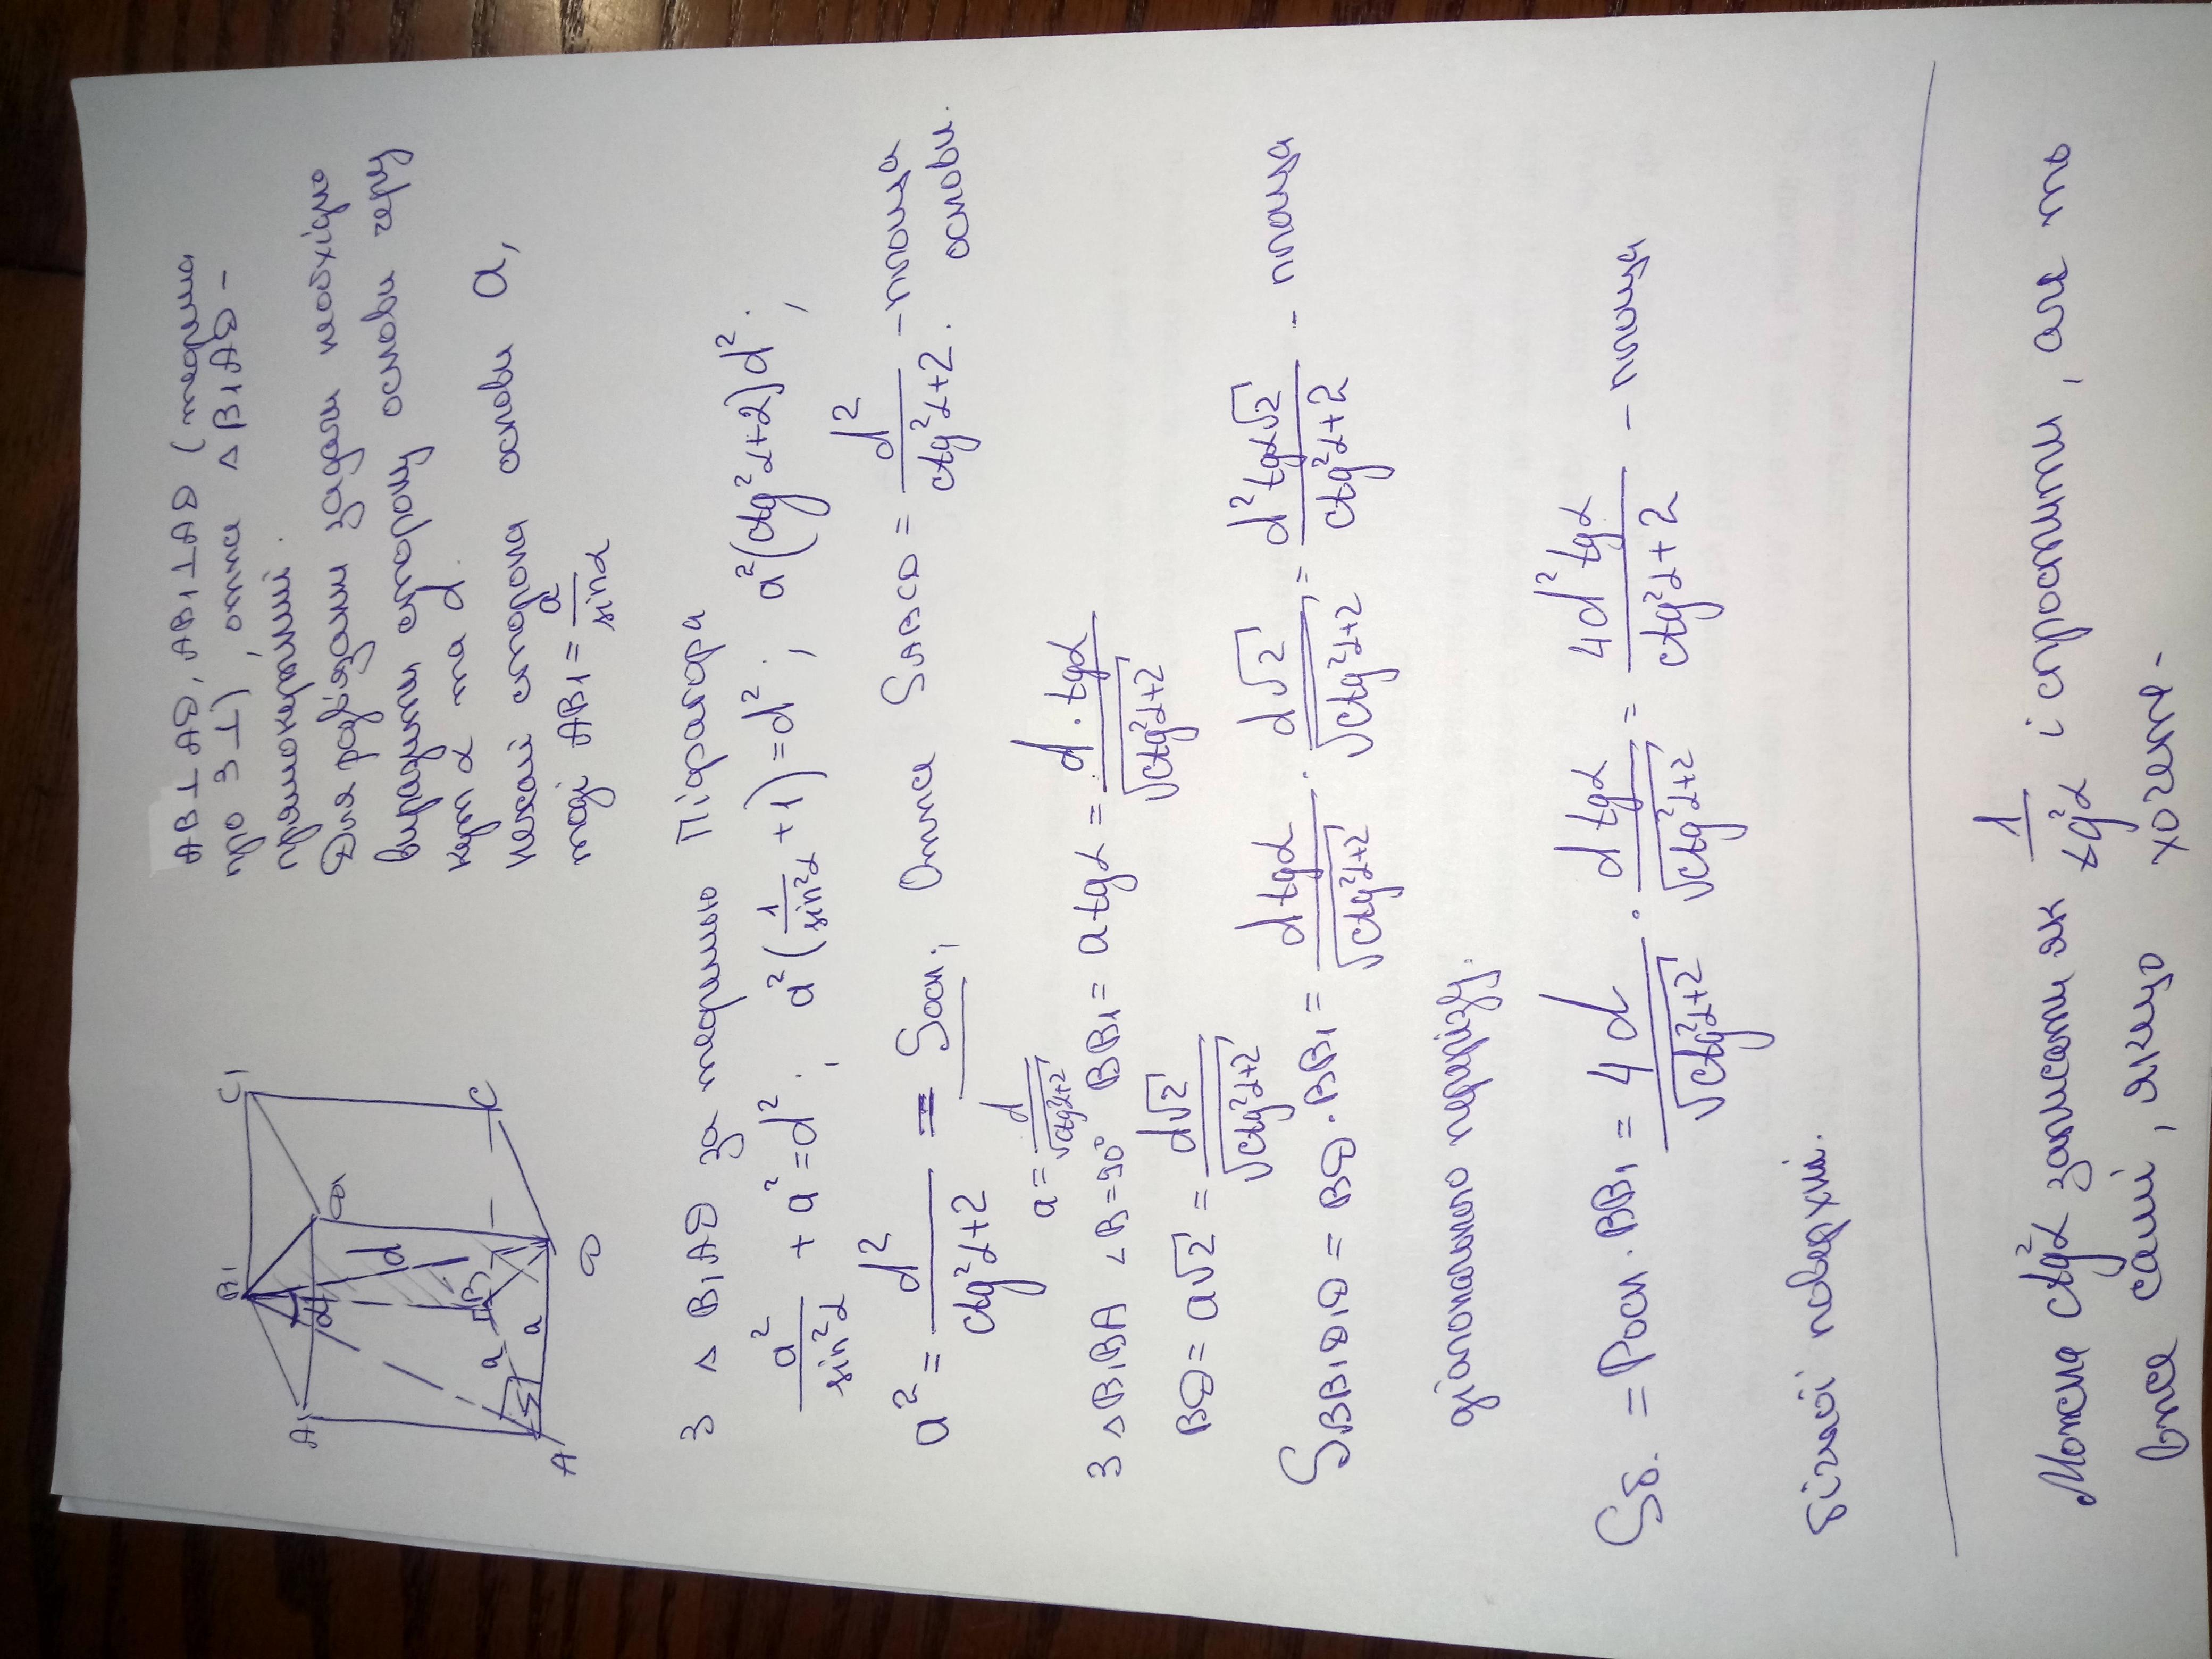 AB⊥AD, AB1⊥AD (теорема
про 3⊥), отже △B1AD -
прямокутний.
Для розв'язання задачі необхідно
виразити сторону основи через
кут α та d.
Нехай сторона основи a,
тоді AB1 = a/sinα
A1 B1 C1 D1
α d
a a
A B C D
З △B1AD за теоремою Піфагора
a²/sin²α + a² = d²; a²(1/sin²α + 1) = d²; a²(ctg²α+2)d²;
a² = d²/(ctg²α+2) = Sосн; Отже SABCD = d²/(ctg²α+2) - площа основи.
a = d/√(ctg²α+2)
З △B1BA ∠B=90° BB1 = a tgα = d·tgα/√(ctg²α+2)
BD = a√2 = d√2/√(ctg²α+2)
SBB1D1D = BD·BB1 = d tgα/√(ctg²α+2) · d√2/√(ctg²α+2) = d² tgα√2/(ctg²α+2) - площа
діагонального перерізу.
Sб. = Pосн·BB1 = 4d/√(ctg²α+2) · d tgα/√(ctg²α+2) = 4d² tgα/(ctg²α+2) - площа
бічної поверхні.
Можна ctg²α записати як 1/tg²α і спростити, але то
вже самі, якщо хочете-